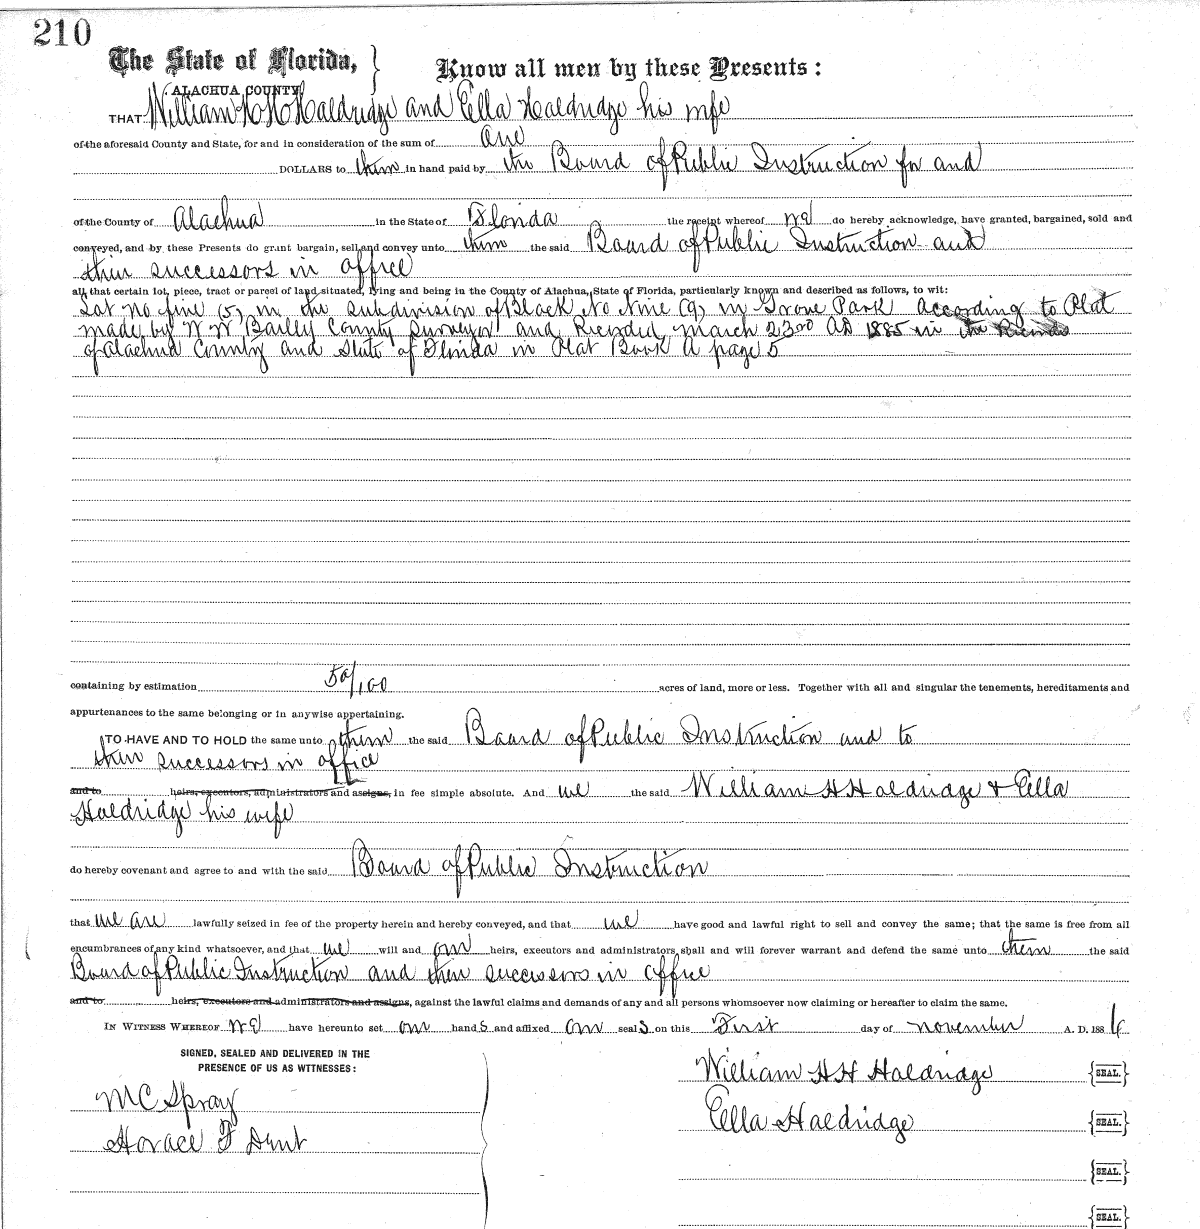 210
The State of Florida, } Know all men by these Presents :
ALACHUA COUNTY
THAT William H H Haldridge and Ella Haldridge his wife
of the aforesaid County and State, for and in consideration of the sum of One
DOLLARS to them in hand paid by the Board of Public Instruction for and
of the County of Alachua in the State of Florida the receipt whereof we do hereby acknowledge, have granted, bargained, sold and
conveyed, and by these Presents do grant bargain, sell and convey unto them the said Board of Public Instruction and
their successors in office
all that certain lot, piece, tract or parcel of land situated, lying and being in the County of Alachua, State of Florida, particularly known and described as follows, to wit:
Lot No five (5) in the subdivision of Block No Nine (9) in Grove Park According to Plat
made by W W Bailey County Surveyor and Recorded March 23rd AD 1885 in the Records
of Alachua County and State of Florida in Plat Book A page 5
containing by estimation 50/100 acres of land, more or less. Together with all and singular the tenements, hereditaments and
appurtenances to the same belonging or in anywise appertaining.
TO HAVE AND TO HOLD the same unto them the said Board of Public Instruction and to
their successors in office
and to heirs, executors, administrators and assigns, in fee simple absolute. And we the said William H H Haldridge & Ella
Haldridge his wife
do hereby covenant and agree to and with the said Board of Public Instruction
that we are lawfully seized in fee of the property herein and hereby conveyed, and that we have good and lawful right to sell and convey the same; that the same is free from all
encumbrances of any kind whatsoever, and that we will and our heirs, executors and administrators shall and will forever warrant and defend the same unto them the said
Board of Public Instruction and their successors in office
and to heirs, executors and administrators and assigns, against the lawful claims and demands of any and all persons whomsoever now claiming or hereafter to claim the same.
IN WITNESS WHEREOF we have hereunto set our hands and affixed our seals on this First day of November A. D. 1886
SIGNED, SEALED AND DELIVERED IN THE
PRESENCE OF US AS WITNESSES:
William H H Haldridge {SEAL.}
M C Spray
Ella Haldridge {SEAL.}
Horace F Dent
{SEAL.}
{SEAL.}